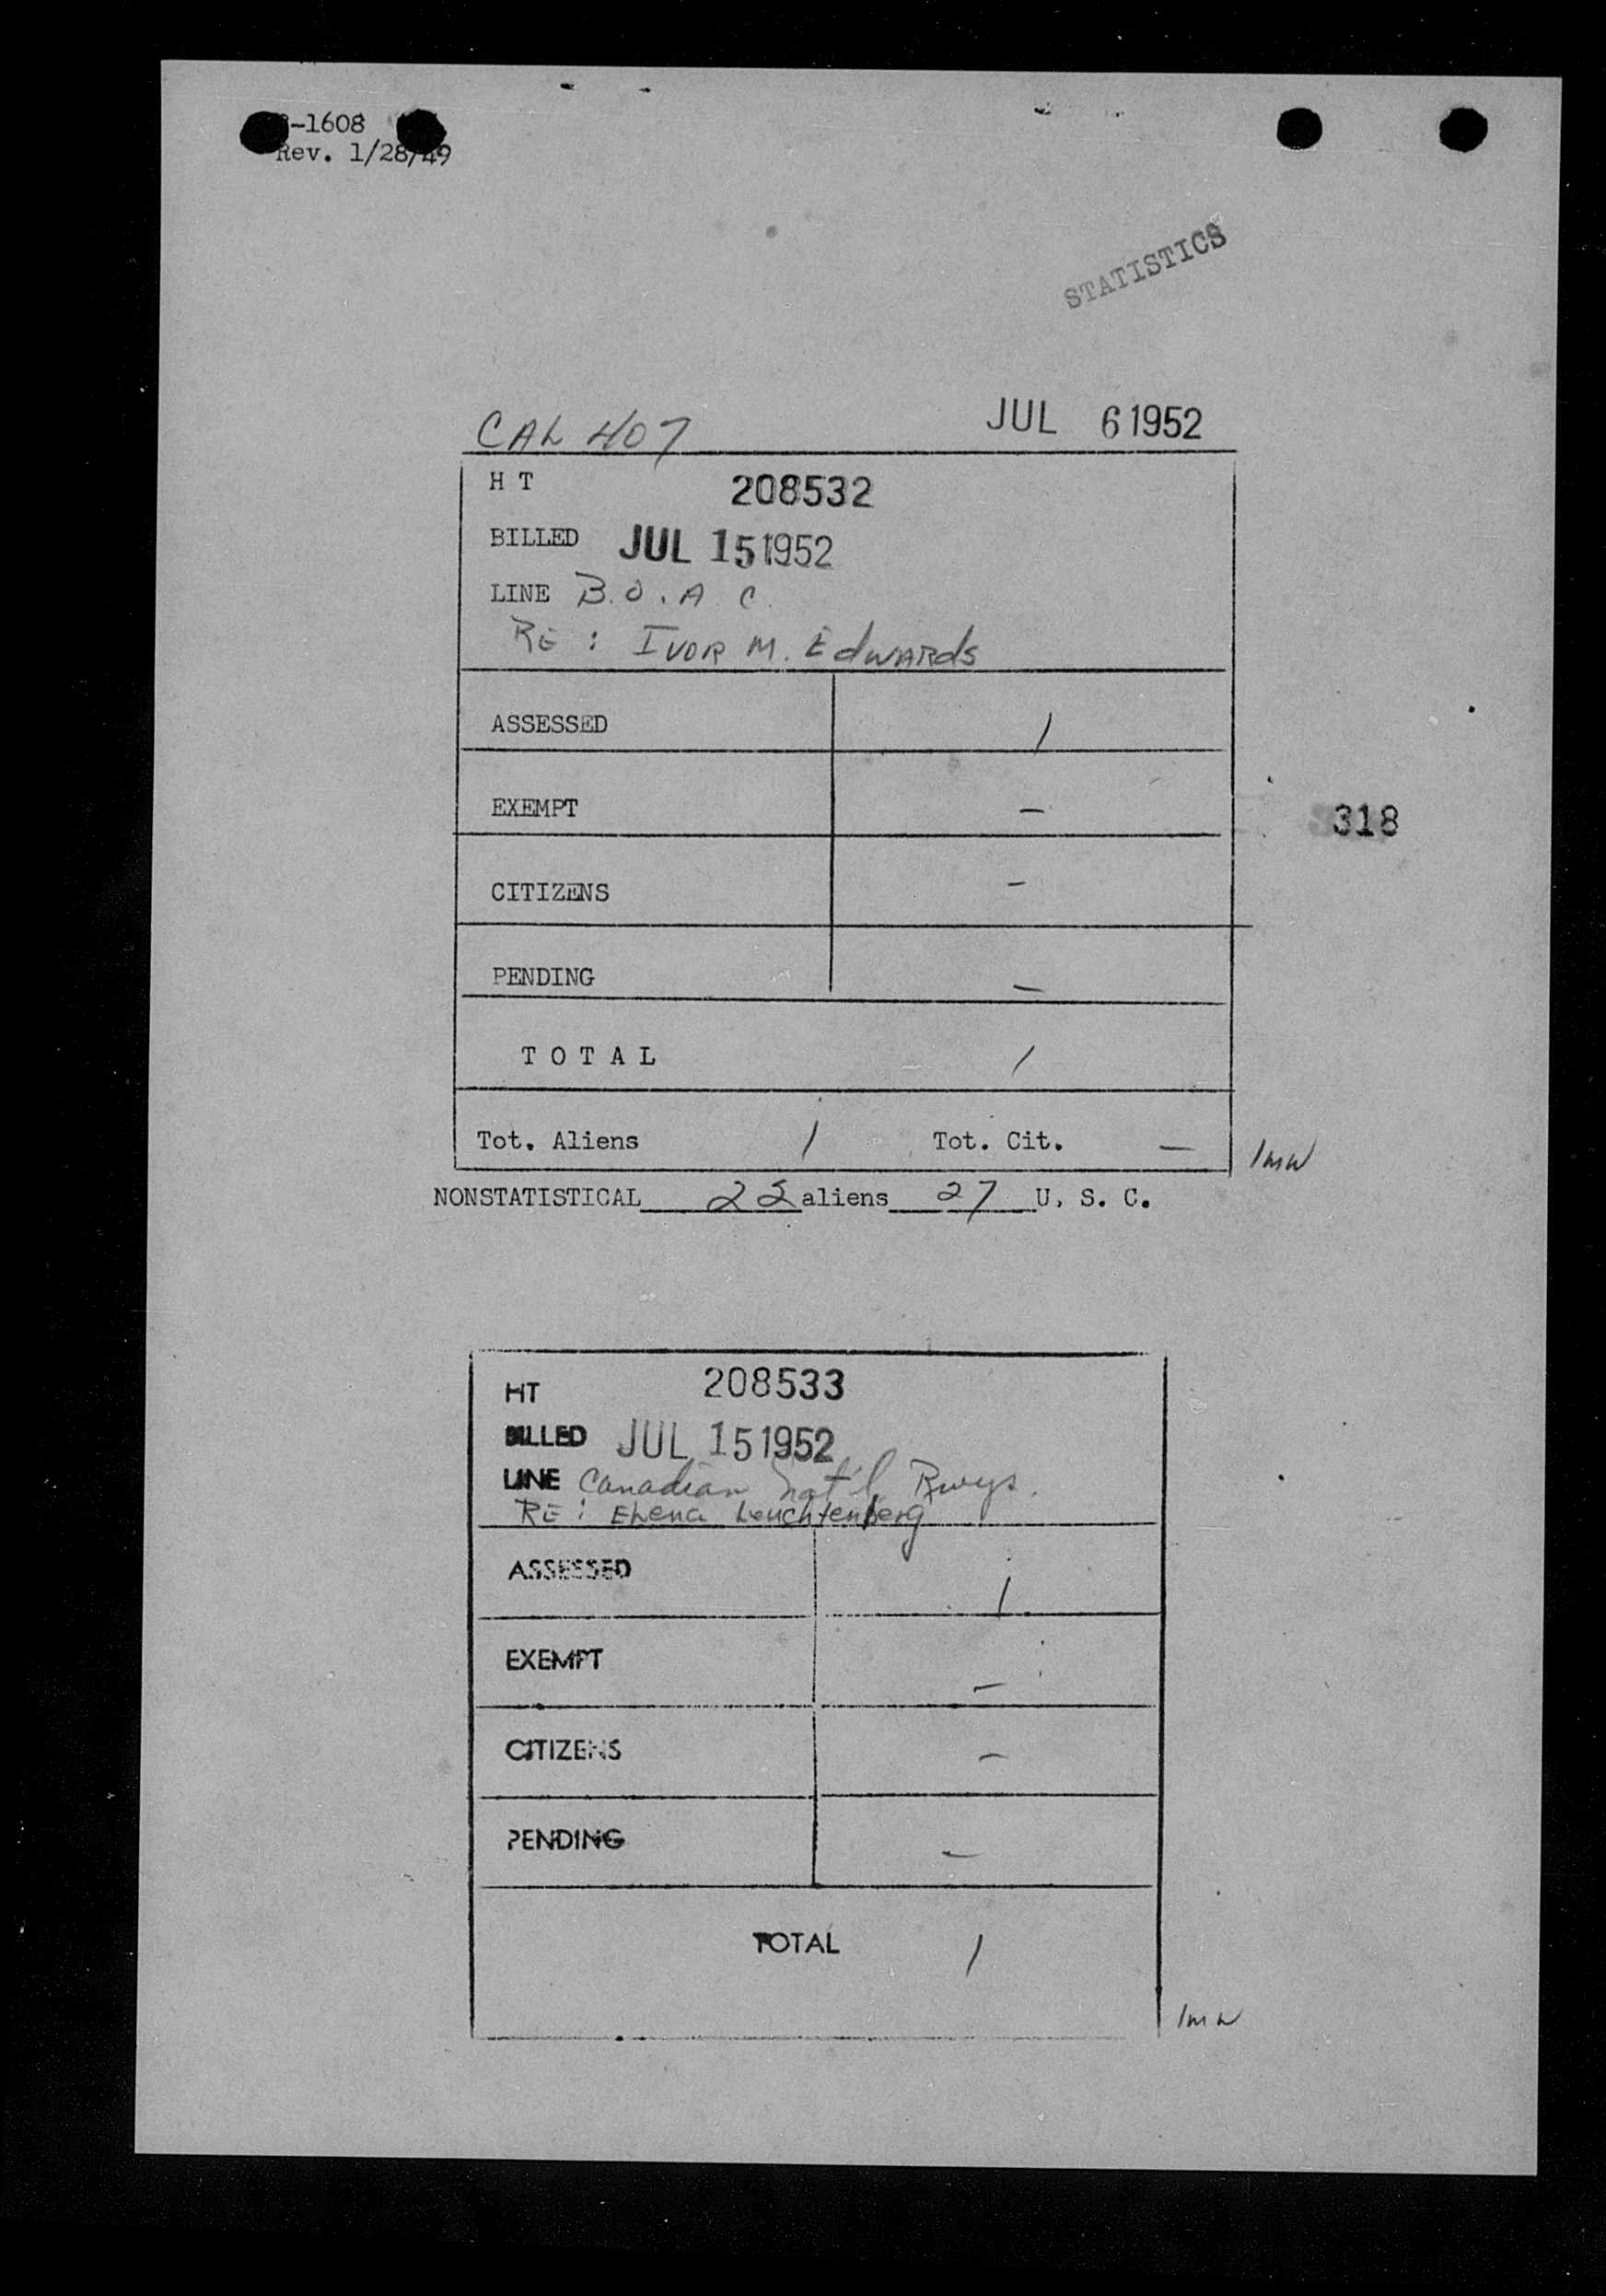 -1608
Rev. 1/28/49
STATISTICS
CAL 407 JUL 6 1952
H T 208532
BILLED JUL 15 1952
LINE B.O.A.C.
RE : IVOR M. EdwARds
ASSESSED 1
EXEMPT —
318
CITIZENS —
PENDING —
T O T A L 1
Tot. Aliens 1 Tot. Cit. —
NONSTATISTICAL 22 aliens 27 U. S. C.
HT 208533
BILLED JUL 15 1952
LINE Canadian Nat'l Rwys.
RE : Elena Leuchtenberg
ASSESSED 1
EXEMPT —
CITIZENS —
PENDING —
TOTAL 1